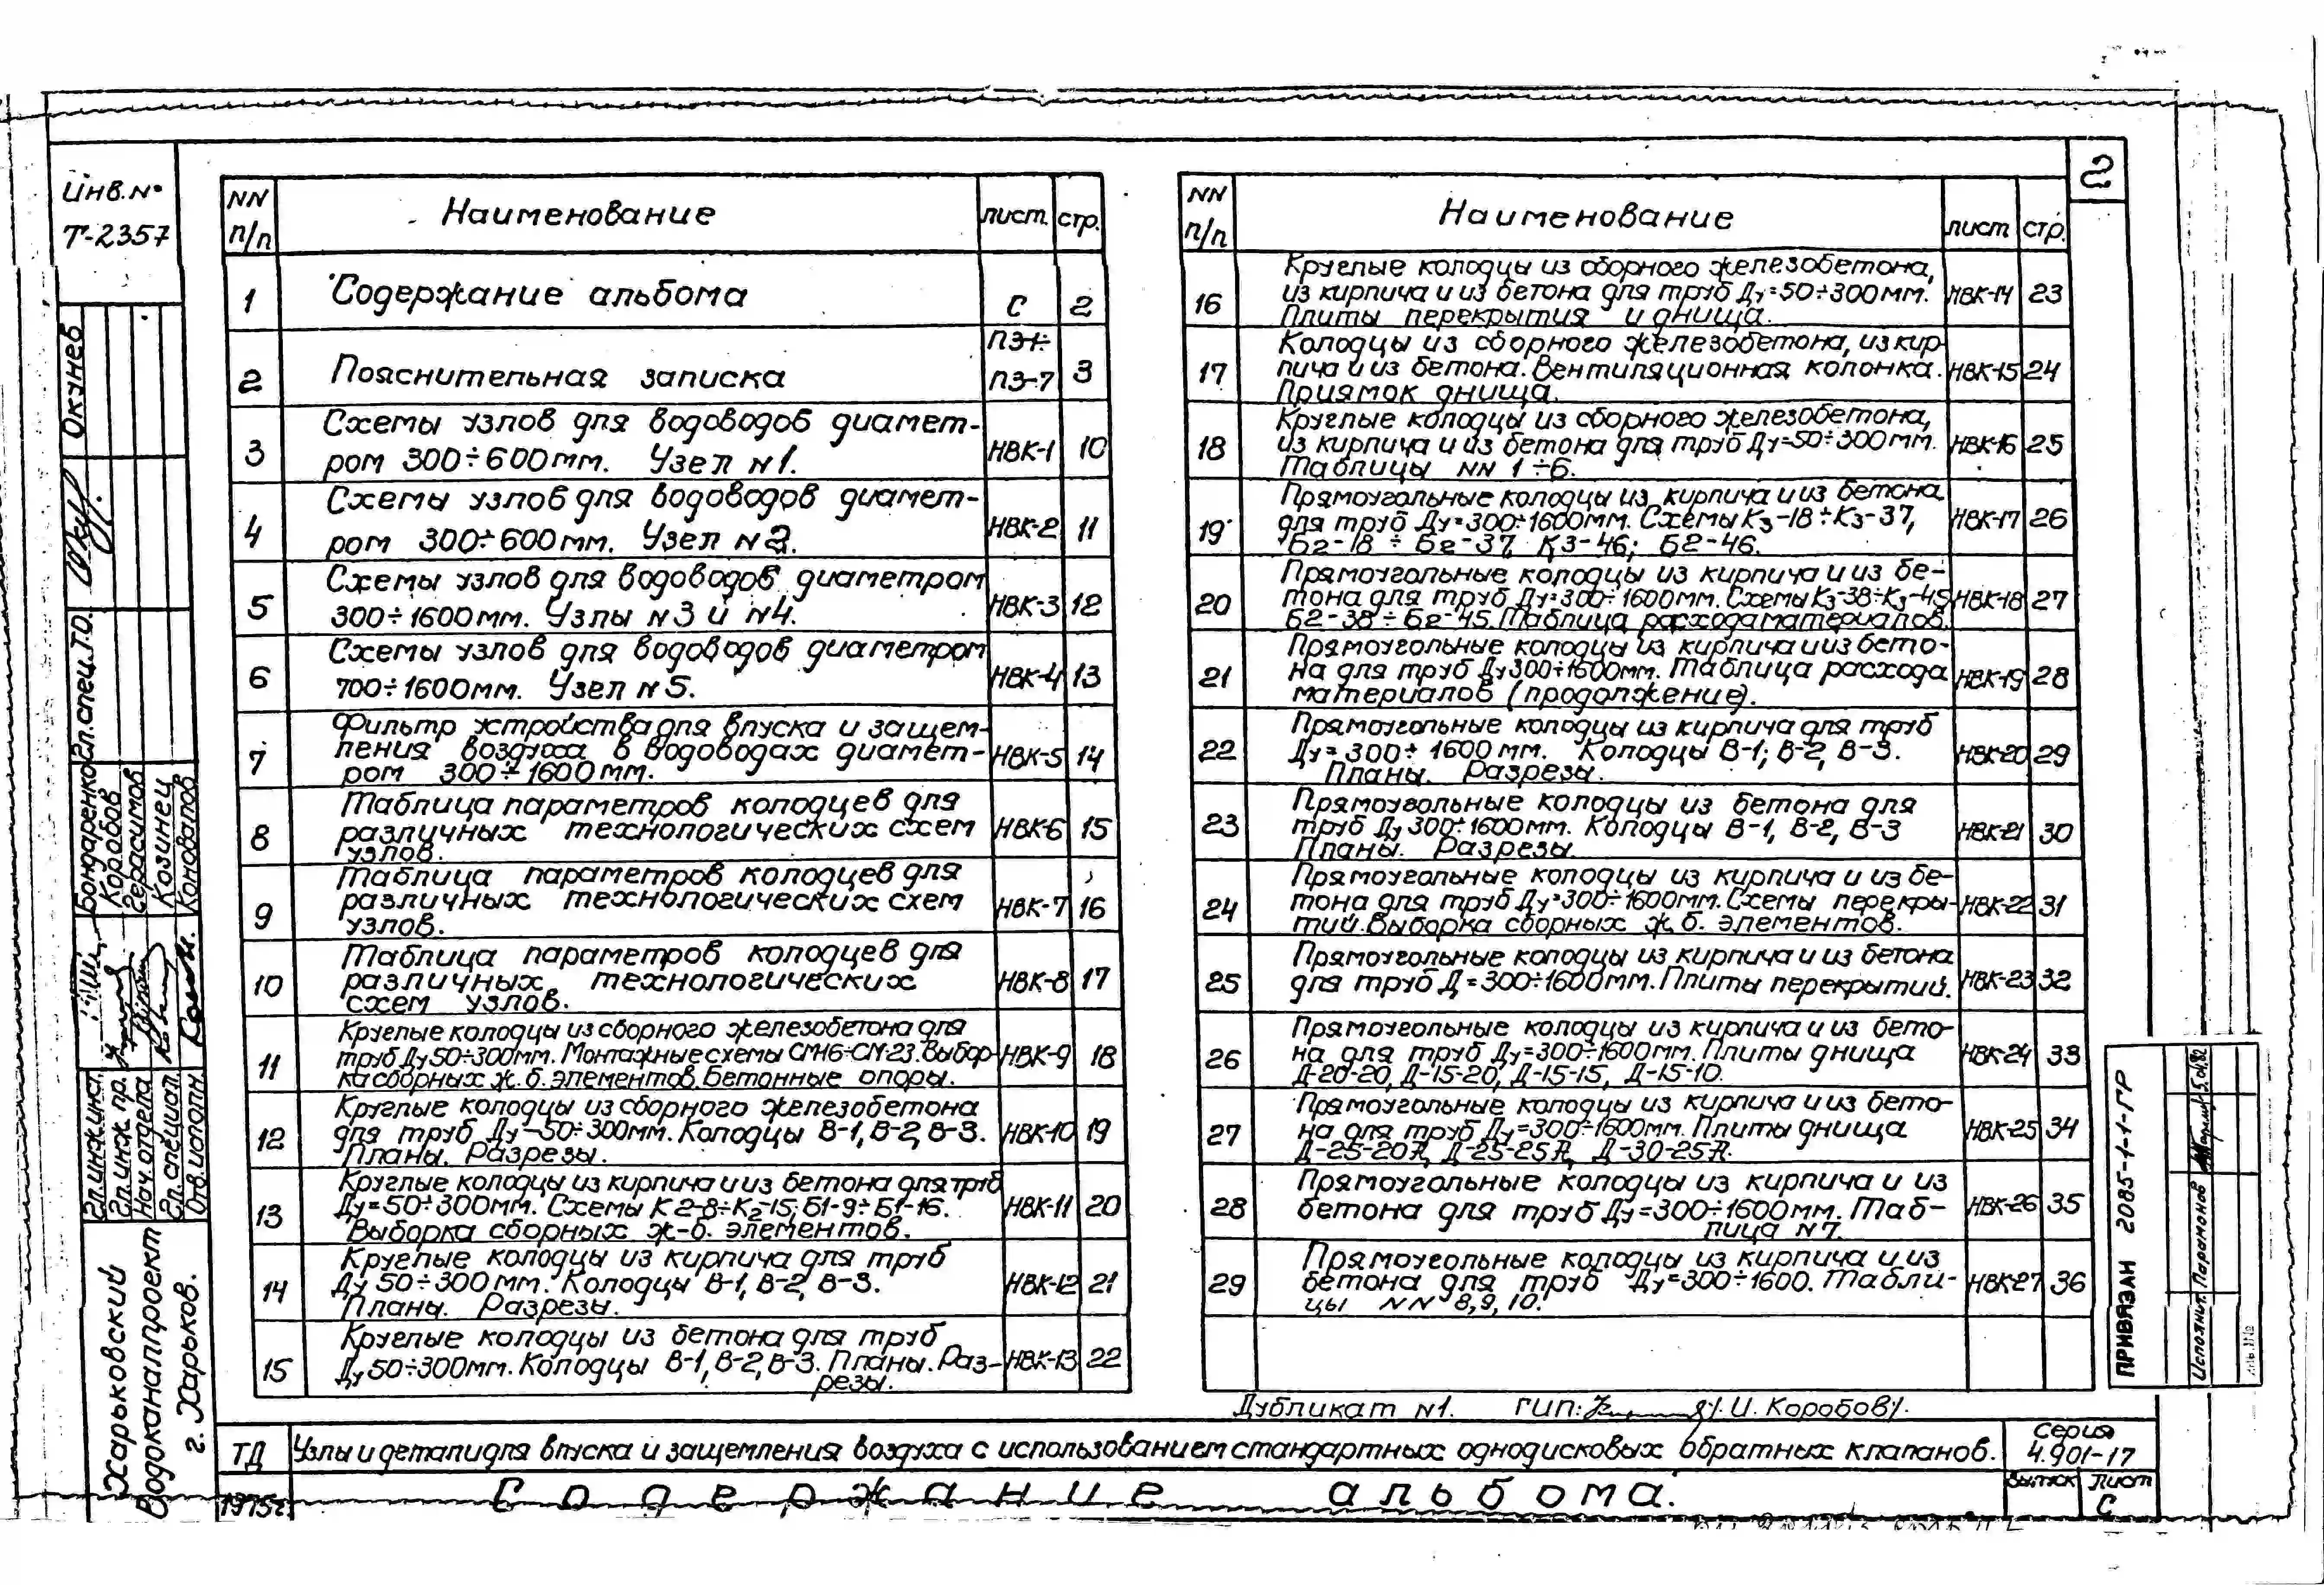 2
Инв.№
Т-2357
NN п/п Наименование лист. стр.
1 Содержание альбома С 2
2 Пояснительная записка ПЗ-1÷ ПЗ-7 3
3 Схемы узлов для водоводов диамет-
ром 300÷600мм. Узел N1. НВК-1 10
4 Схемы узлов для водоводов диамет-
ром 300÷600мм. Узел N2. НВК-2 11
5 Схемы узлов для водоводов диаметром
300÷1600мм. Узлы N3 и N4. НВК-3 12
6 Схемы узлов для водоводов диаметром
700÷1600мм. Узел N5. НВК-4 13
7 Фильтр устройства для впуска и защем-
ления воздуха в водоводах диамет-
ром 300÷1600мм. НВК-5 14
8 Таблица параметров колодцев для
различных технологических схем
узлов. НВК-6 15
9 Таблица параметров колодцев для
различных технологических схем
узлов. НВК-7 16
10 Таблица параметров колодцев для
различных технологических
схем узлов. НВК-8 17
11 Круглые колодцы из сборного железобетона для
труб Ду50÷300мм. Монтажные схемы СМ16÷СМ-23. Выбор-
ка сборных ж.б. элементов. Бетонные опоры. НВК-9 18
12 Круглые колодцы из сборного железобетона
для труб Ду-50÷300мм. Колодцы В-1, В-2, В-3.
Планы. Разрезы. НВК-10 19
13 Круглые колодцы из кирпича и из бетона для труб
Ду=50÷300мм. Схемы К2-8÷К2-15; Б1-9÷Б1-16.
Выборка сборных ж-б. элементов. НВК-11 20
14 Круглые колодцы из кирпича для труб
Ду 50÷300мм. Колодцы В-1, В-2, В-3.
Планы. Разрезы. НВК-12 21
15 Круглые колодцы из бетона для труб
Ду50÷300мм. Колодцы В-1, В-2, В-3. Планы. Раз-
резы. НВК-13 22
NN п/п Наименование лист стр.
16 Круглые колодцы из сборного железобетона,
из кирпича и из бетона для труб Ду=50÷300мм.
Плиты перекрытия и днища. НВК-14 23
17 Колодцы из сборного железобетона, из кир-
пича и из бетона. Вентиляционная колонка.
Приямок днища. НВК-15 24
18 Круглые колодцы из сборного железобетона,
из кирпича и из бетона для труб Ду=50÷300мм.
Таблицы NN 1÷6. НВК-16 25
19 Прямоугольные колодцы из кирпича и из бетона
для труб Ду=300÷1600мм. Схемы К3-18÷К3-37,
Б2-18÷Б2-37, К3-46; Б2-46. НВК-17 26
20 Прямоугольные колодцы из кирпича и из бе-
тона для труб Ду=300÷1600мм. Схемы К3-38÷К3-45
Б2-38÷Б2-45. Таблица расхода материалов. НВК-18 27
21 Прямоугольные колодцы из кирпича и из бето-
на для труб Ду300÷1600мм. Таблица расхода
материалов (продолжение). НВК-19 28
22 Прямоугольные колодцы из кирпича для труб
Ду=300÷1600мм. Колодцы В-1; В-2, В-3.
Планы. Разрезы. НВК-20 29
23 Прямоугольные колодцы из бетона для
труб Ду 300÷1600мм. Колодцы В-1, В-2, В-3
Планы. Разрезы. НВК-21 30
24 Прямоугольные колодцы из кирпича и из бе-
тона для труб Ду=300÷1600мм. Схемы перекры-
тий. Выборка сборных ж.б. элементов. НВК-22 31
25 Прямоугольные колодцы из кирпича и из бетона
для труб Д=300÷1600мм. Плиты перекрытий. НВК-23 32
26 Прямоугольные колодцы из кирпича и из бето-
на для труб Ду=300÷1600мм. Плиты днища
Д-20-20, Д-15-20, Д-15-15, Д-15-10. НВК-24 33
27 Прямоугольные колодцы из кирпича и из бето-
на для труб Ду=300÷1600мм. Плиты днища
Д-25-20А, Д-25-25А, Д-30-25А. НВК-25 34
28 Прямоугольные колодцы из кирпича и из
бетона для труб Ду=300÷1600мм. Таб-
лица N7. НВК-26 35
29 Прямоугольные колодцы из кирпича и из
бетона для труб Ду=300÷1600. Табли-
цы NN 8, 9, 10. НВК-27 36
Дубликат N1. ГИП: /И. Коробов/.
ТД Узлы и детали для впуска и защемления воздуха с использованием стандартных однодисковых обратных клапанов. Серия 4.901-17
1975г. Содержание альбома. Выпуск Лист С
Окунев
Гл.спец.ТО.
Бондаренко
Коробов
Герасимов
Козинец
Коновалов
Гл.инж.инст.
Гл.инж.пр.
Нач.отдела
Гл.специал.
Отв.исполн
Харьковский
Водоканалпроект
г. Харьков.
ПРИВЯЗАН 2085-1-1-ГР
Исполнит. Парамонов